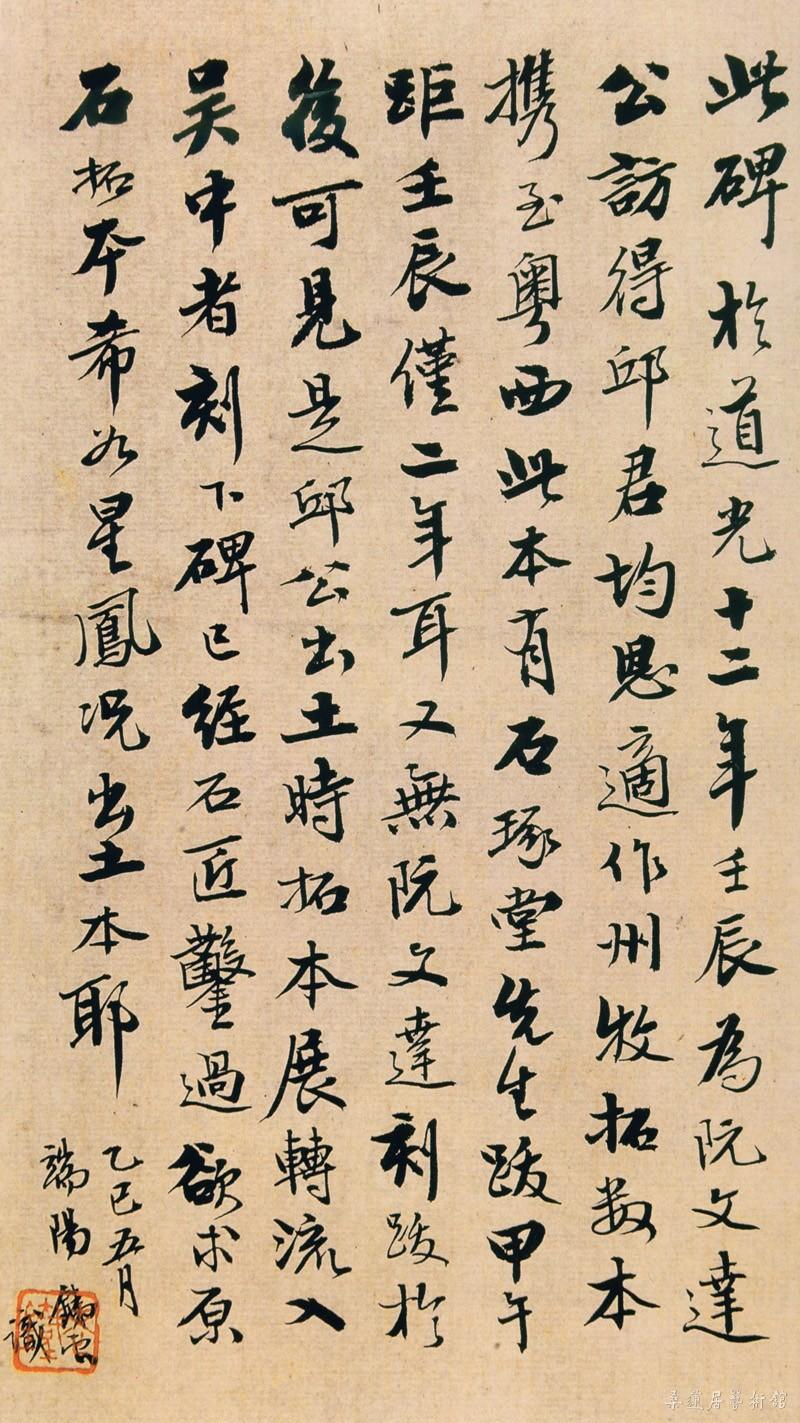 此碑於道光十二年壬辰為阮文達
公訪得邱君均恩適作州牧拓数本
携至粵西此本有石琢堂先生跋甲午
距壬辰僅二年耳又無阮文達刻跋於
後可見是邱公出土時拓本展轉流入
吴中者刻下碑已經石匠鑿過欲求原
石拓本希如星鳳况出土本耶
乙巳五月
端陽
鐵雲
識
桑蓮居藝術館